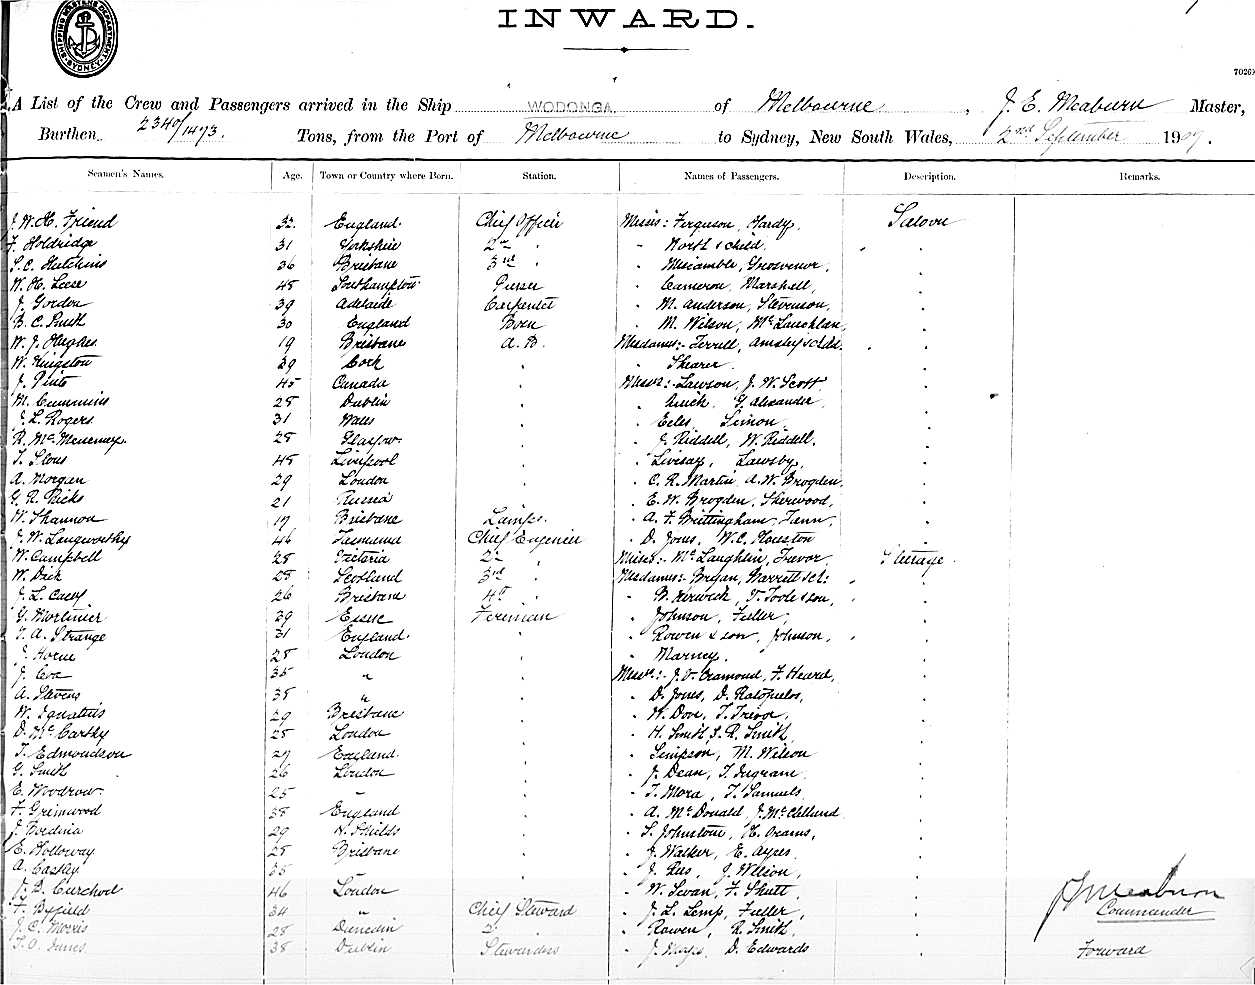 SHIPPING MASTERS DEPARTMENT SYDNEY
INWARD.
A List of the Crew and Passengers arrived in the Ship WODONGA of Melbourne, J. E. Meaburn Master,
Burthen 2340/1473. Tons, from the Port of Melbourne to Sydney, New South Wales, 2nd September 1909.
Seamen's Names. Age. Town or Country where Born. Station. Names of Passengers. Description. Remarks.
J. W. H. Friend 32 England Chief Officer Misses: Ferguson, Hardy, Saloon
F. Holdridge 31 Yorkshire 2nd " North & child
S. C. Hutchins 36 Brisbane 3rd " Grosvenor,
W. H. Leese 45 Southampton Purser Cameron, Marshall,
J. Gordon 39 Adelaide Carpenter M. Anderson, Stevenson,
B. C. Smith 30 England Bosn M. Wilson, McLauchlan,
W. J. Hughes 19 Brisbane A. B. Mesdames:- Terrill,
W. Kingston 29 Cork Shearer
J. Pinto 45 Canada Messrs:- Lawson, J. W. Scott
M. Cummins 28 Dublin G. Alexander
J. L. Rogers 31 Wales Eeles, Simon
R. McMenemy 25 Glasgow J. Riddell, W. Riddell,
45 Liverpool Livesay,
A. Morgan 29 London C. R. Martin, A. W. Brogden,
G. R. Ricks 21 Russia E. W. Brogden, Sherwood,
W. Shannon 19 Brisbane Lamps A. F. Brittingham,
J. W. Langworthy 46 Tasmania Chief Engineer D. Jones, W. C. Houston
W. Campbell 25 Victoria 2nd " Misses:- McLaughlin, Trevor, Steerage
W. Dick 25 Scotland 3rd " Mesdames:- Bryan,
J. L. Casey 26 Brisbane 4th " Toole & son,
G. Mortimer 39 Essex Fireman Johnson, Fuller,
A. Strange 31 England Rowen & son, Johnson,
Horne 28 London Marney
J. Cox 35 " Messrs:- Cramond, F. Heard,
A. Stevens 38 " D. Jones,
W. Ignatius 29 Brisbane W. Dove, T. Trevor,
D. McCarthy 25 London H. Smith, S. R. Smith,
T. Edmondson 27 England Simpson, M. Wilson
G. Smith 26 London J. Dean, T. Ingram
E. Woodrow 25 " T. Mora, T. Samuels
F. Grimwood 38 England A. McDonald, J. McClelland
J. 29 N. Shields S. Johnstone,
E. Holloway 25 Brisbane J. Walker, E. Ayres
A. Caskey 35 " J. J. Wilson,
46 London W. Swan, F. Shutt, J E Meaburn
F. Byfield 34 " Chief Steward J. L. Fuller, Commander
J. C. Morris 28 Dunedin 2nd " Rowen, R. Smith,
38 Dublin Stewardess J. Mays, D. Edwards Forward